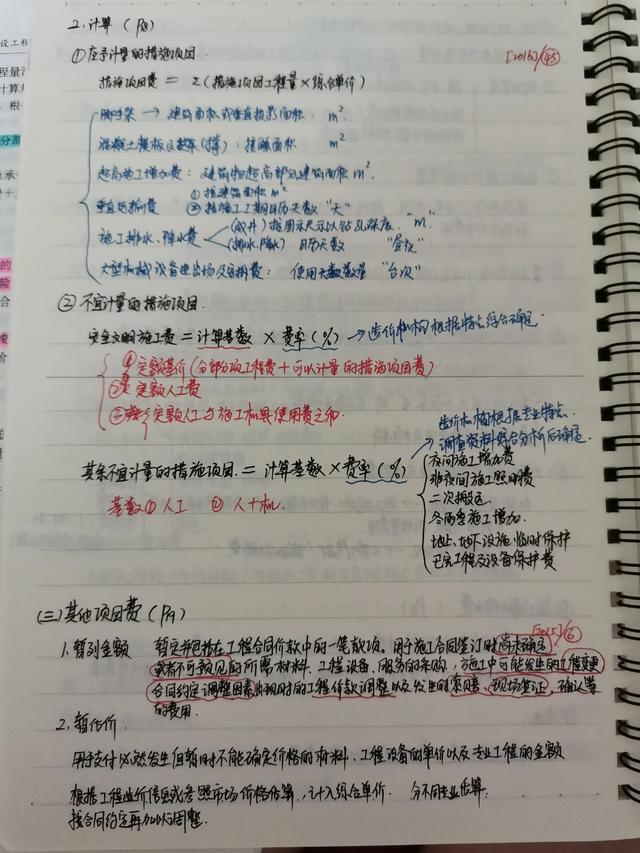 2.计算（P8）
①应予计量的措施项目. [2016]/45
措施项目费 = Σ(措施项目工程量×综合单价)
脚手架 → 建筑面积或垂直投影面积. m²
混凝土模板及支架(撑): 接触面积 m²
超高施工增加费: 建筑物超高部分建筑面积 m².
垂直运输费 ①按建筑面积 m²
②按施工工期日历天数 "天"
施工排水、降水费 (成井) 按图示尺寸以钻孔深度. "m".
(排水.降水) 日历天数 "昼夜"
大型机械设备进出场及安拆费: 使用天数数量 "台次"
②不宜计量的措施项目.
安全文明施工费 = 计算基数 × 费率(%) → 造价机构根据特点综合确定
①定额基价(分部分项工程费+可以计量的措施项目费)
②定额人工费
③定额人工与施工机具使用费之和.
造价机构根据专业特点.
调查资料综合分析后确定.
其余不宜计量的措施项目. = 计算基数 × 费率(%)
基数 ①人工 ②人+机.
夜间施工增加费
非夜间施工照明费
二次搬运
冬雨季施工增加.
地上.地下设施临时保护
已完工程及设备保护费
(三)其他项目费(P9)
[2015]/6
1.暂列金额 暂定并包括在工程合同价款中的一笔款项。用于施工合同签订时尚未确定
或者不可预见的所需材料、工程设备、服务的采购, 施工中可能发生的工程变更
合同约定调整因素出现时的工程价款调整以及发生的索赔、现场签证、确认等
的费用.
2.暂估价
用于支付必然发生但暂时不能确定价格的材料、工程设备的单价以及专业工程的金额
根据工程造价信息或参照市场价格估算,计入综合单价. 分不同专业估算.
按合同约定再加以调整.